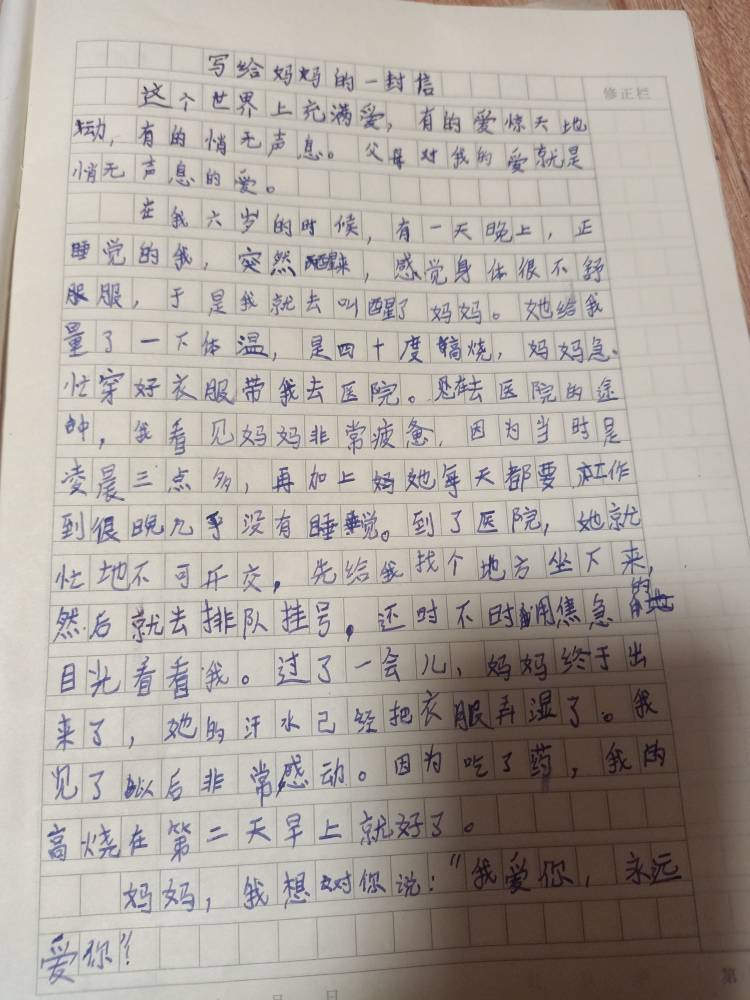 写给妈妈的一封信
修正栏
这个世界上充满爱，有的爱惊天地
动，有的悄无声息。父母对我的爱就是
悄无声息的爱。
在我六岁的时候，有一天晚上，正
睡觉的我，突然醒来，感觉身体很不舒
服服，于是我就去叫醒了妈妈。她给我
量了一下体温，是四十度高烧，妈妈急
忙穿好衣服带我去医院。在去医院的途
中，我看见妈妈非常疲惫，因为当时是
凌晨三点多，再加上妈她每天都要工作
到很晚几乎没有睡觉。到了医院，她就
忙地不可开交，先给我找个地方坐下来，
然后就去排队挂号，还时不时用焦急的
目光看看我。过了一会儿，妈妈终于出
来了，她的汗水已经把衣服弄湿了。我
见了以后非常感动。因为吃了药，我的
高烧在第二天早上就好了。
妈妈，我想对你说：“我爱你，永远
爱你”！
月 日
第